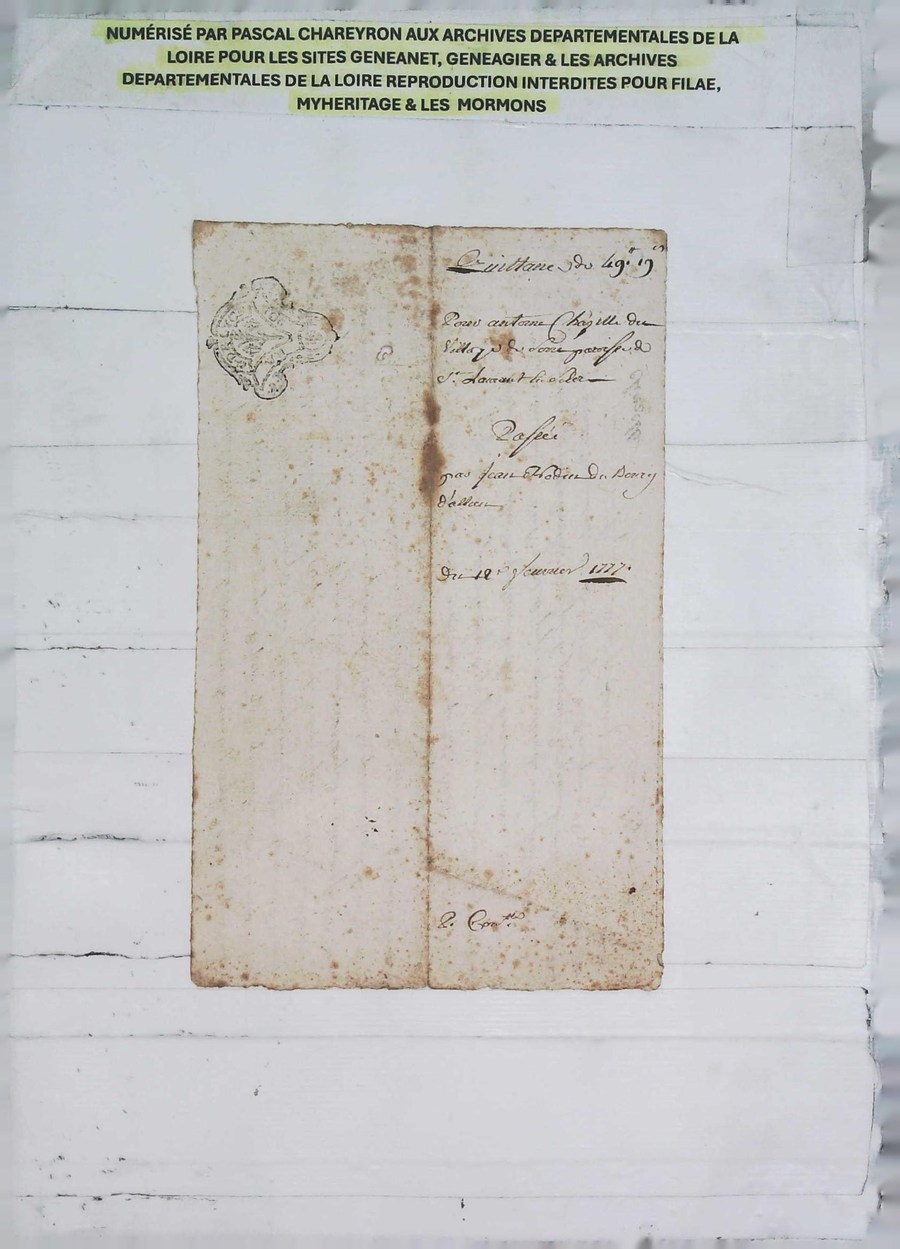 NUMÉRISÉ PAR PASCAL CHAREYRON AUX ARCHIVES DEPARTEMENTALES DE LA
LOIRE POUR LES SITES GENEANET, GENEAGIER & LES ARCHIVES
DEPARTEMENTALES DE LA LOIRE REPRODUCTION INTERDITES POUR FILAE,
MYHERITAGE & LES MORMONS
Quittance de 49
Pour antoine Chapelle du
Village de paroisse de
St.
Passée
par Jean du Bourg
d'allieu
du 12 fevrier 1777.